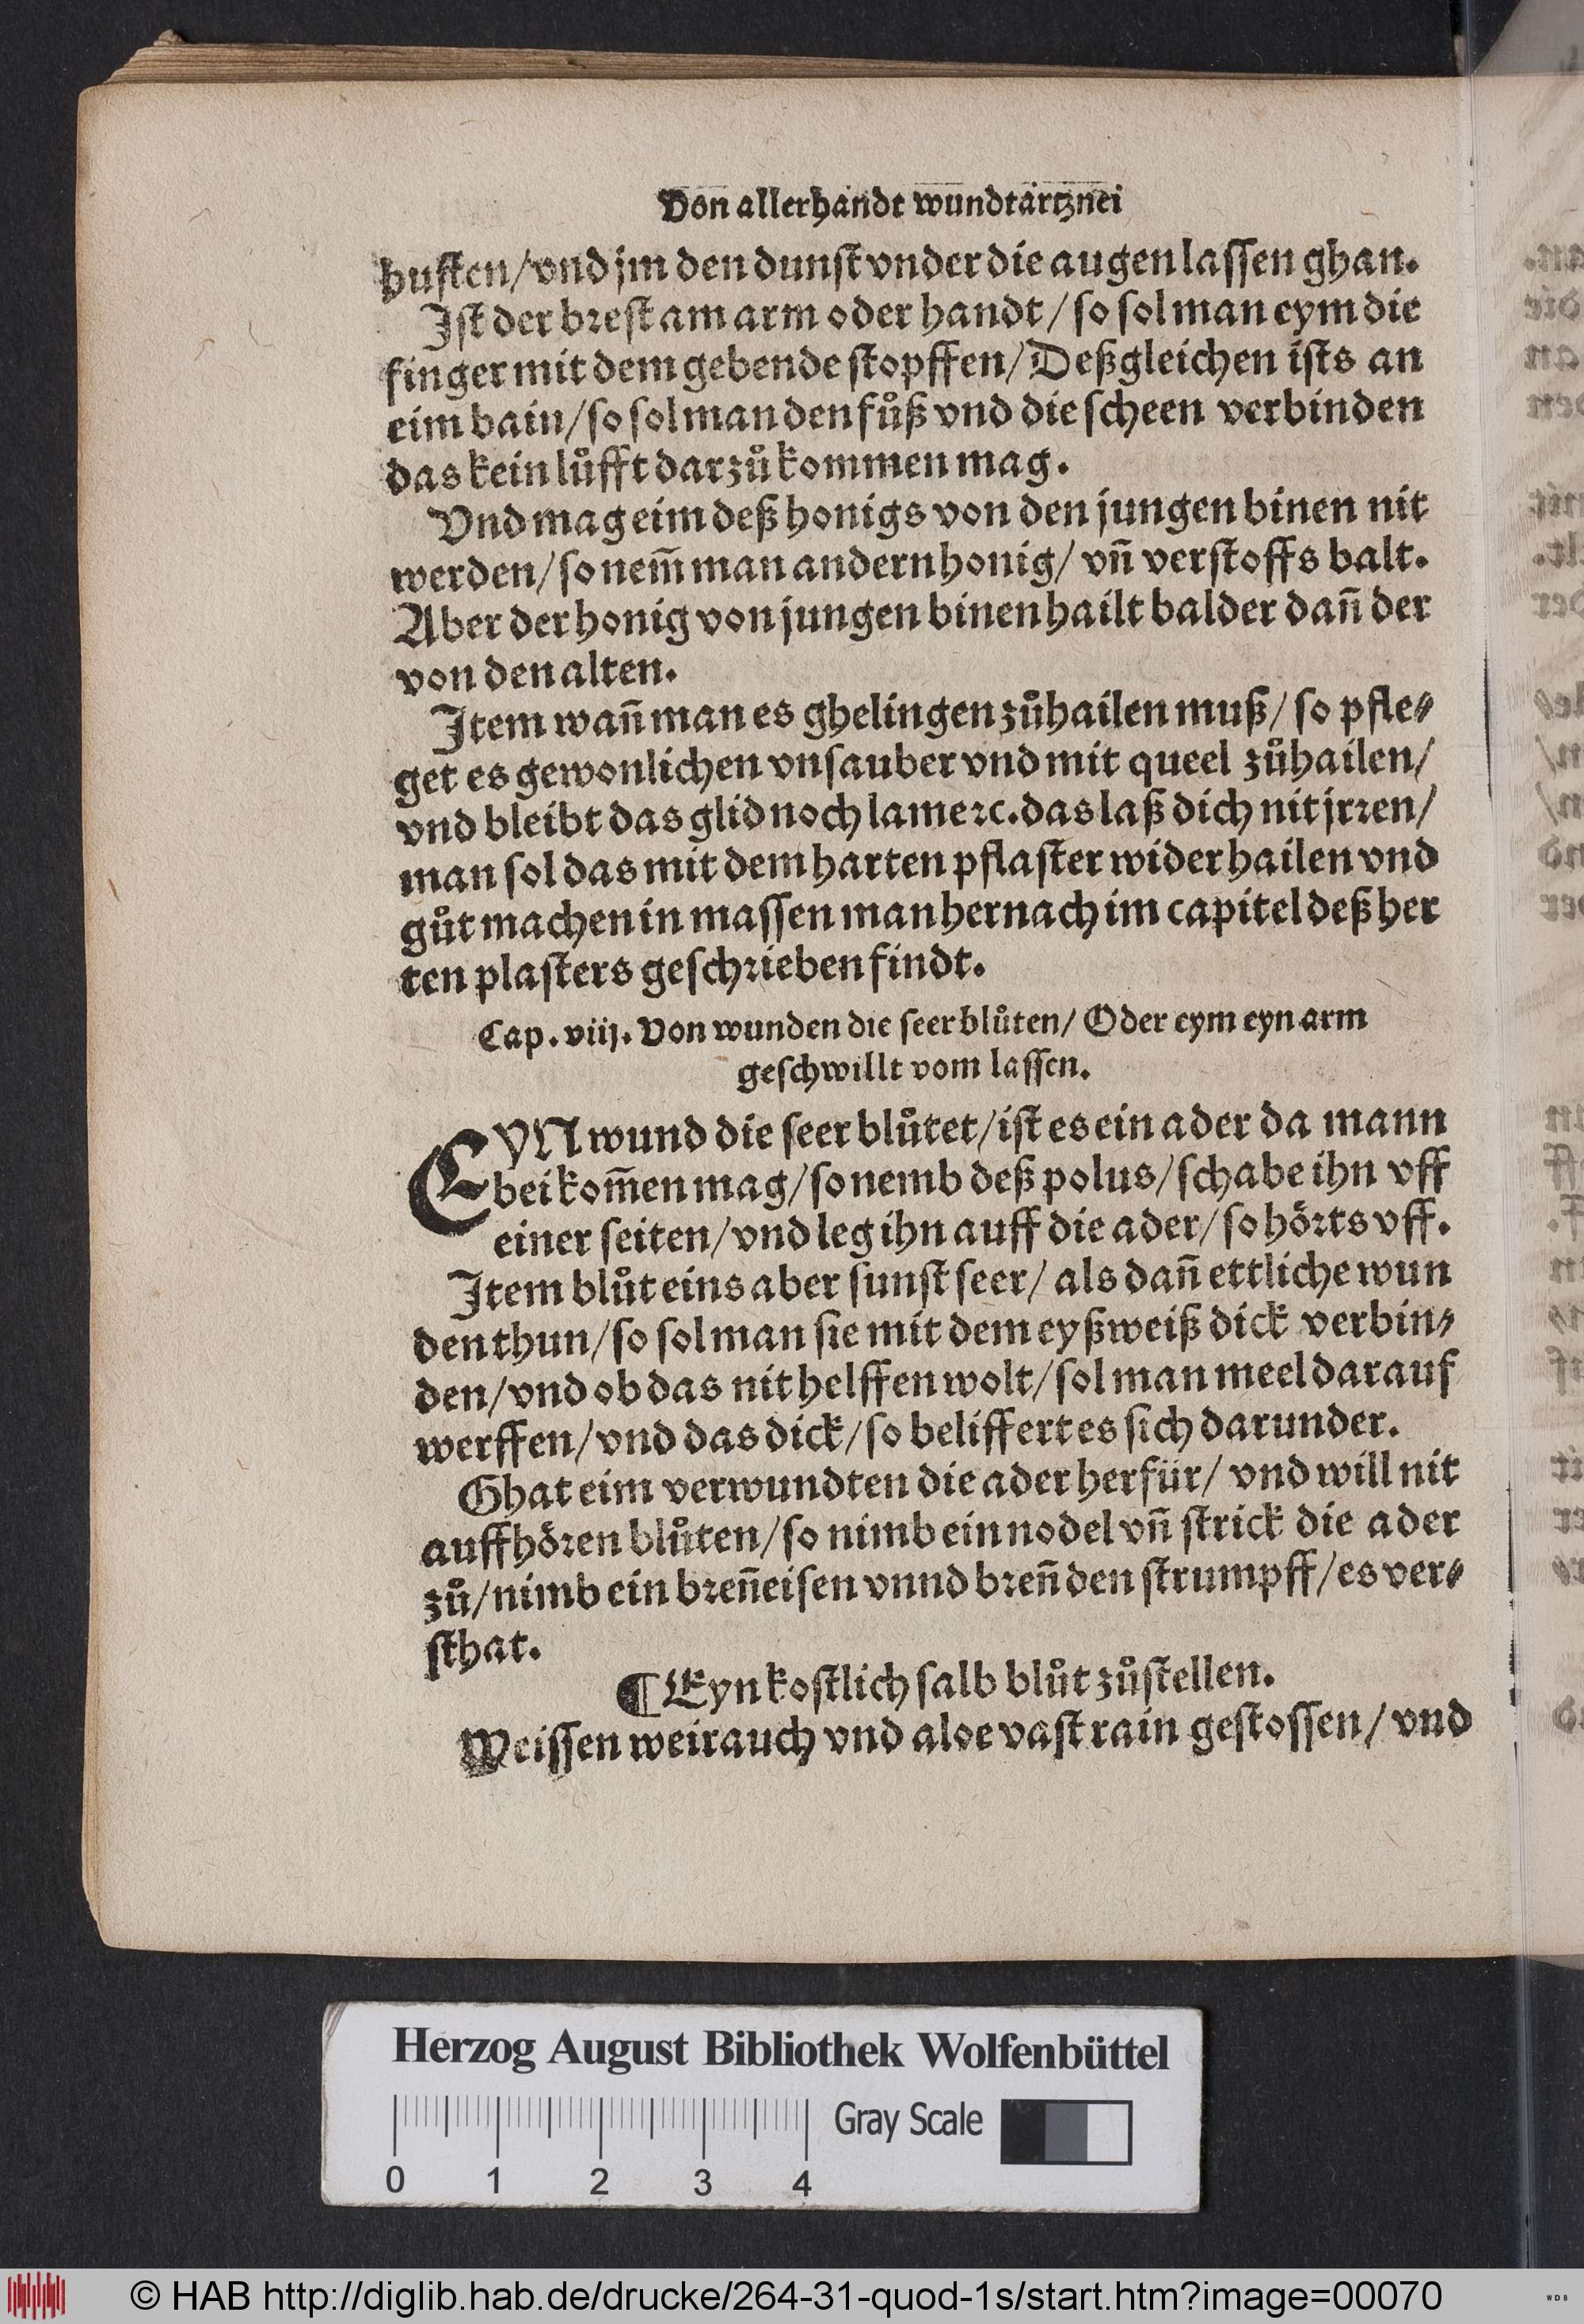 Von allerhandt wundtärtznei
husten/vnd jm den dunst vnder die augen lassen ghan.
Ist der brest am arm oder handt/so sol man eym die
finger mit dem gebende stopffen/Deßgleichen ists an
eim bain/so sol man den fůß vnd die scheen verbinden
das kein lůfft darzů kommen mag.
Vnd mag eim deß honigs von den jungen binen nit
werden/so nem̄ man andern honig/vn̄ verstoffs balt.
Aber der honig von jungen binen hailt balder dan̄ der
von den alten.
Item wan̄ man es ghelingen zůhailen muß/so pfle⸗
get es gewonlichen vnsauber vnd mit queel zůhailen/
vnd bleibt das glid noch lame ꝛc. das laß dich nit jrren/
man sol das mit dem harten pflaster wider hailen vnd
gůt machen in massen man hernach im capitel deß her
ten plasters geschrieben findt.
Cap. viij. Von wunden die seer blůten/Oder eym eyn arm
geschwillt vom lassen.
EYN wund die seer blůtet/ist es ein ader da mann
bei kom̄en mag/so nemb deß polus/schabe ihn vff
einer seiten/vnd leg ihn auff die ader/so hörts vff.
Item blůt eins aber sunst seer/als dan̄ ettliche wun
den thun/so sol man sie mit dem eyßweiß dick verbin⸗
den/vnd ob das nit helffen wolt/sol man meel darauf
werffen/vnd das dick/so beliffert es sich darunder.
Ghat eim verwundten die ader herfür/vnd will nit
auffhören blůten/so nimb ein nodel vn̄ strick die ader
zů/nimb ein bren̄eisen vnnd bren̄ den strumpff/es ver⸗
sthat.
¶ Eyn kostlich salb blůt zůstellen.
Weissen weirauch vnd aloe vast rain gestossen/vnd
Herzog August Bibliothek Wolfenbüttel
Gray Scale
0 1 2 3 4
© HAB http://diglib.hab.de/drucke/264-31-quod-1s/start.htm?image=00070
WDB